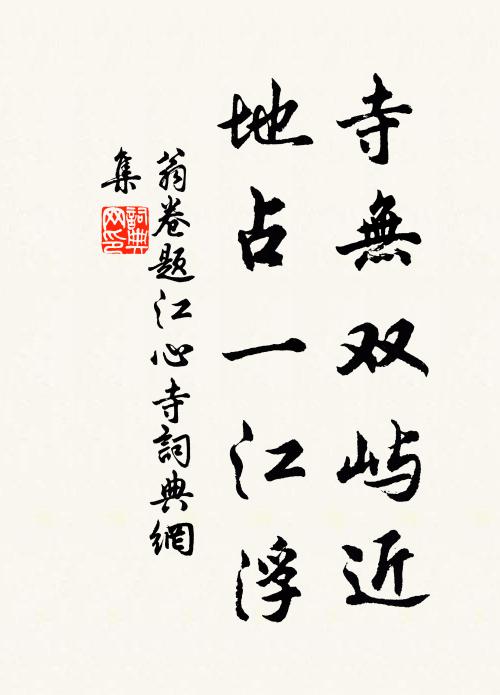 寺無双屿近
地占一江浮
翁卷题江心寺詞典網
集
詞典
网印